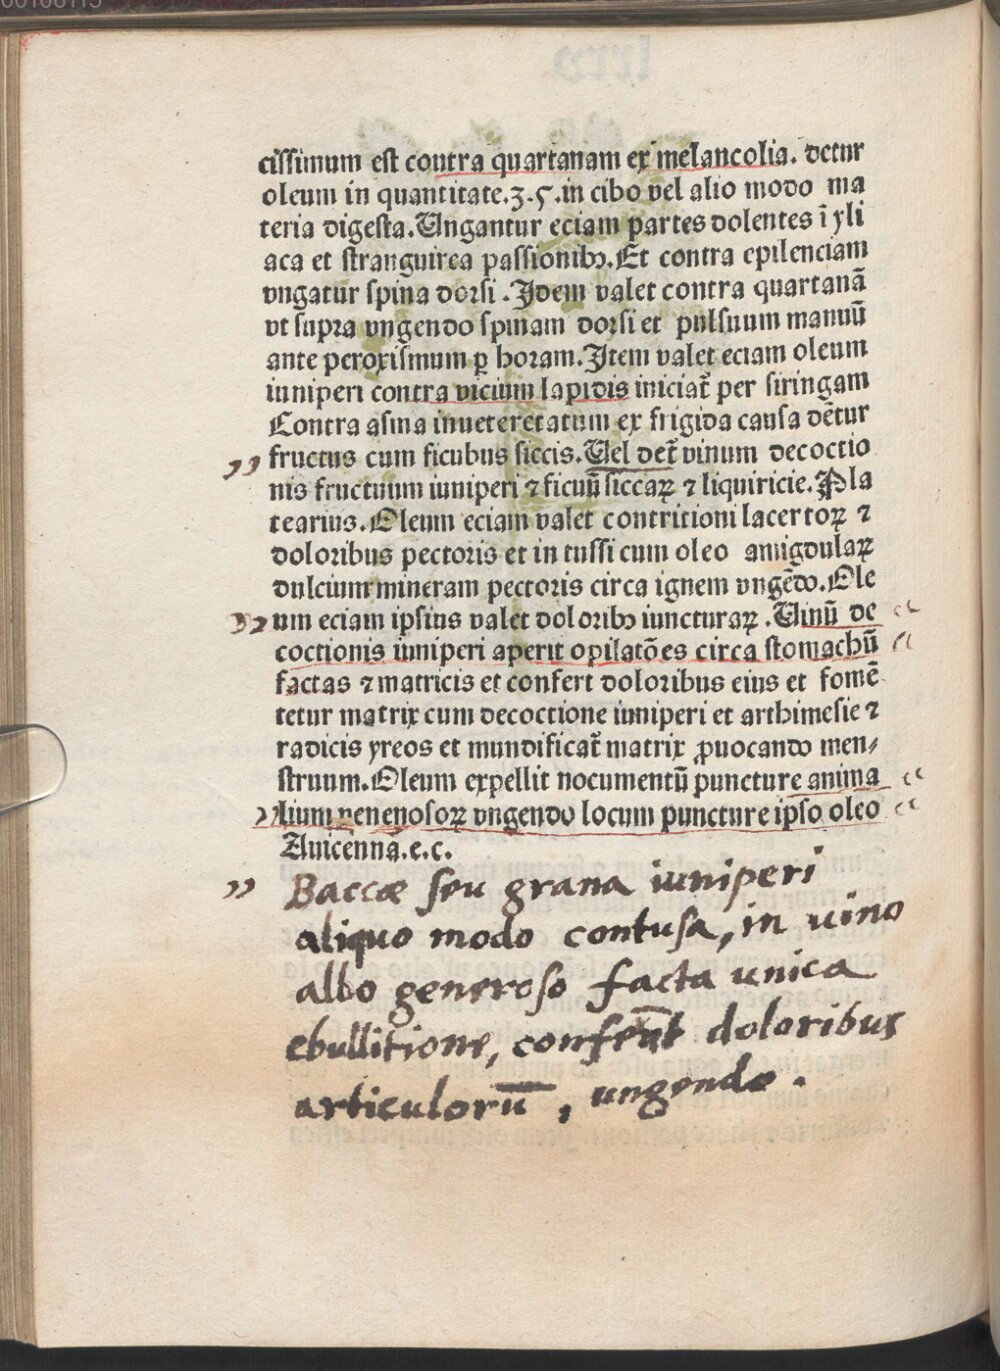 cissimum est contra quartanam ex melancolia. detur
oleum in quantitate.ʒ.5.in cibo vel alio modo ma
teria digesta.Ungantur eciam partes dolentes ī yli
aca et stranguirea passionibꝫ.Et contra epilenciam
vngatur spina dorsi .Idem valet contra quartanā
vt supra vngendo spinam dorsi et pulsuum manuū
ante peroxismum ꝑ horam.Item valet eciam oleum
iuniperi contra vicium lapidis iniciat̄ per siringam
Contra asma inueteretatum ex frigida causa dētur
fructus cum ficubus siccis.Uel det̄ vinum decoctio
nis fructuum iuniperi ⁊ ficuū siccaꝝ ⁊ liquiricie.Pla
tearius.Oleum eciam valet contritioni lacertoꝝ ⁊
doloribus pectoris et in tussi cum oleo amigdulaꝝ
dulcium mineram pectoris circa ignem vngēdo.Ole
um eciam ipsius valet doloribꝫ iuncturaꝝ .Uinū de
coctionis iuniperi aperit opilatōes circa stomachū
factas ⁊ matricis et confert doloribus eius et fomē
tetur matrix cum decoctione iuniperi et arthimesie ⁊
radicis yreos et mundificat̄ matrix ꝓuocando men⸗
struum.Oleum expellit nocumentū puncture anima
lium nenenosoꝝ vngendo locum puncture ipso oleo
Auicenna.e.c.
Baccæ seu grana iuniperi
aliquo modo contusa, in vino
albo generoso facta unica
ebullitione, confert doloribus
articulorū, ungendo.